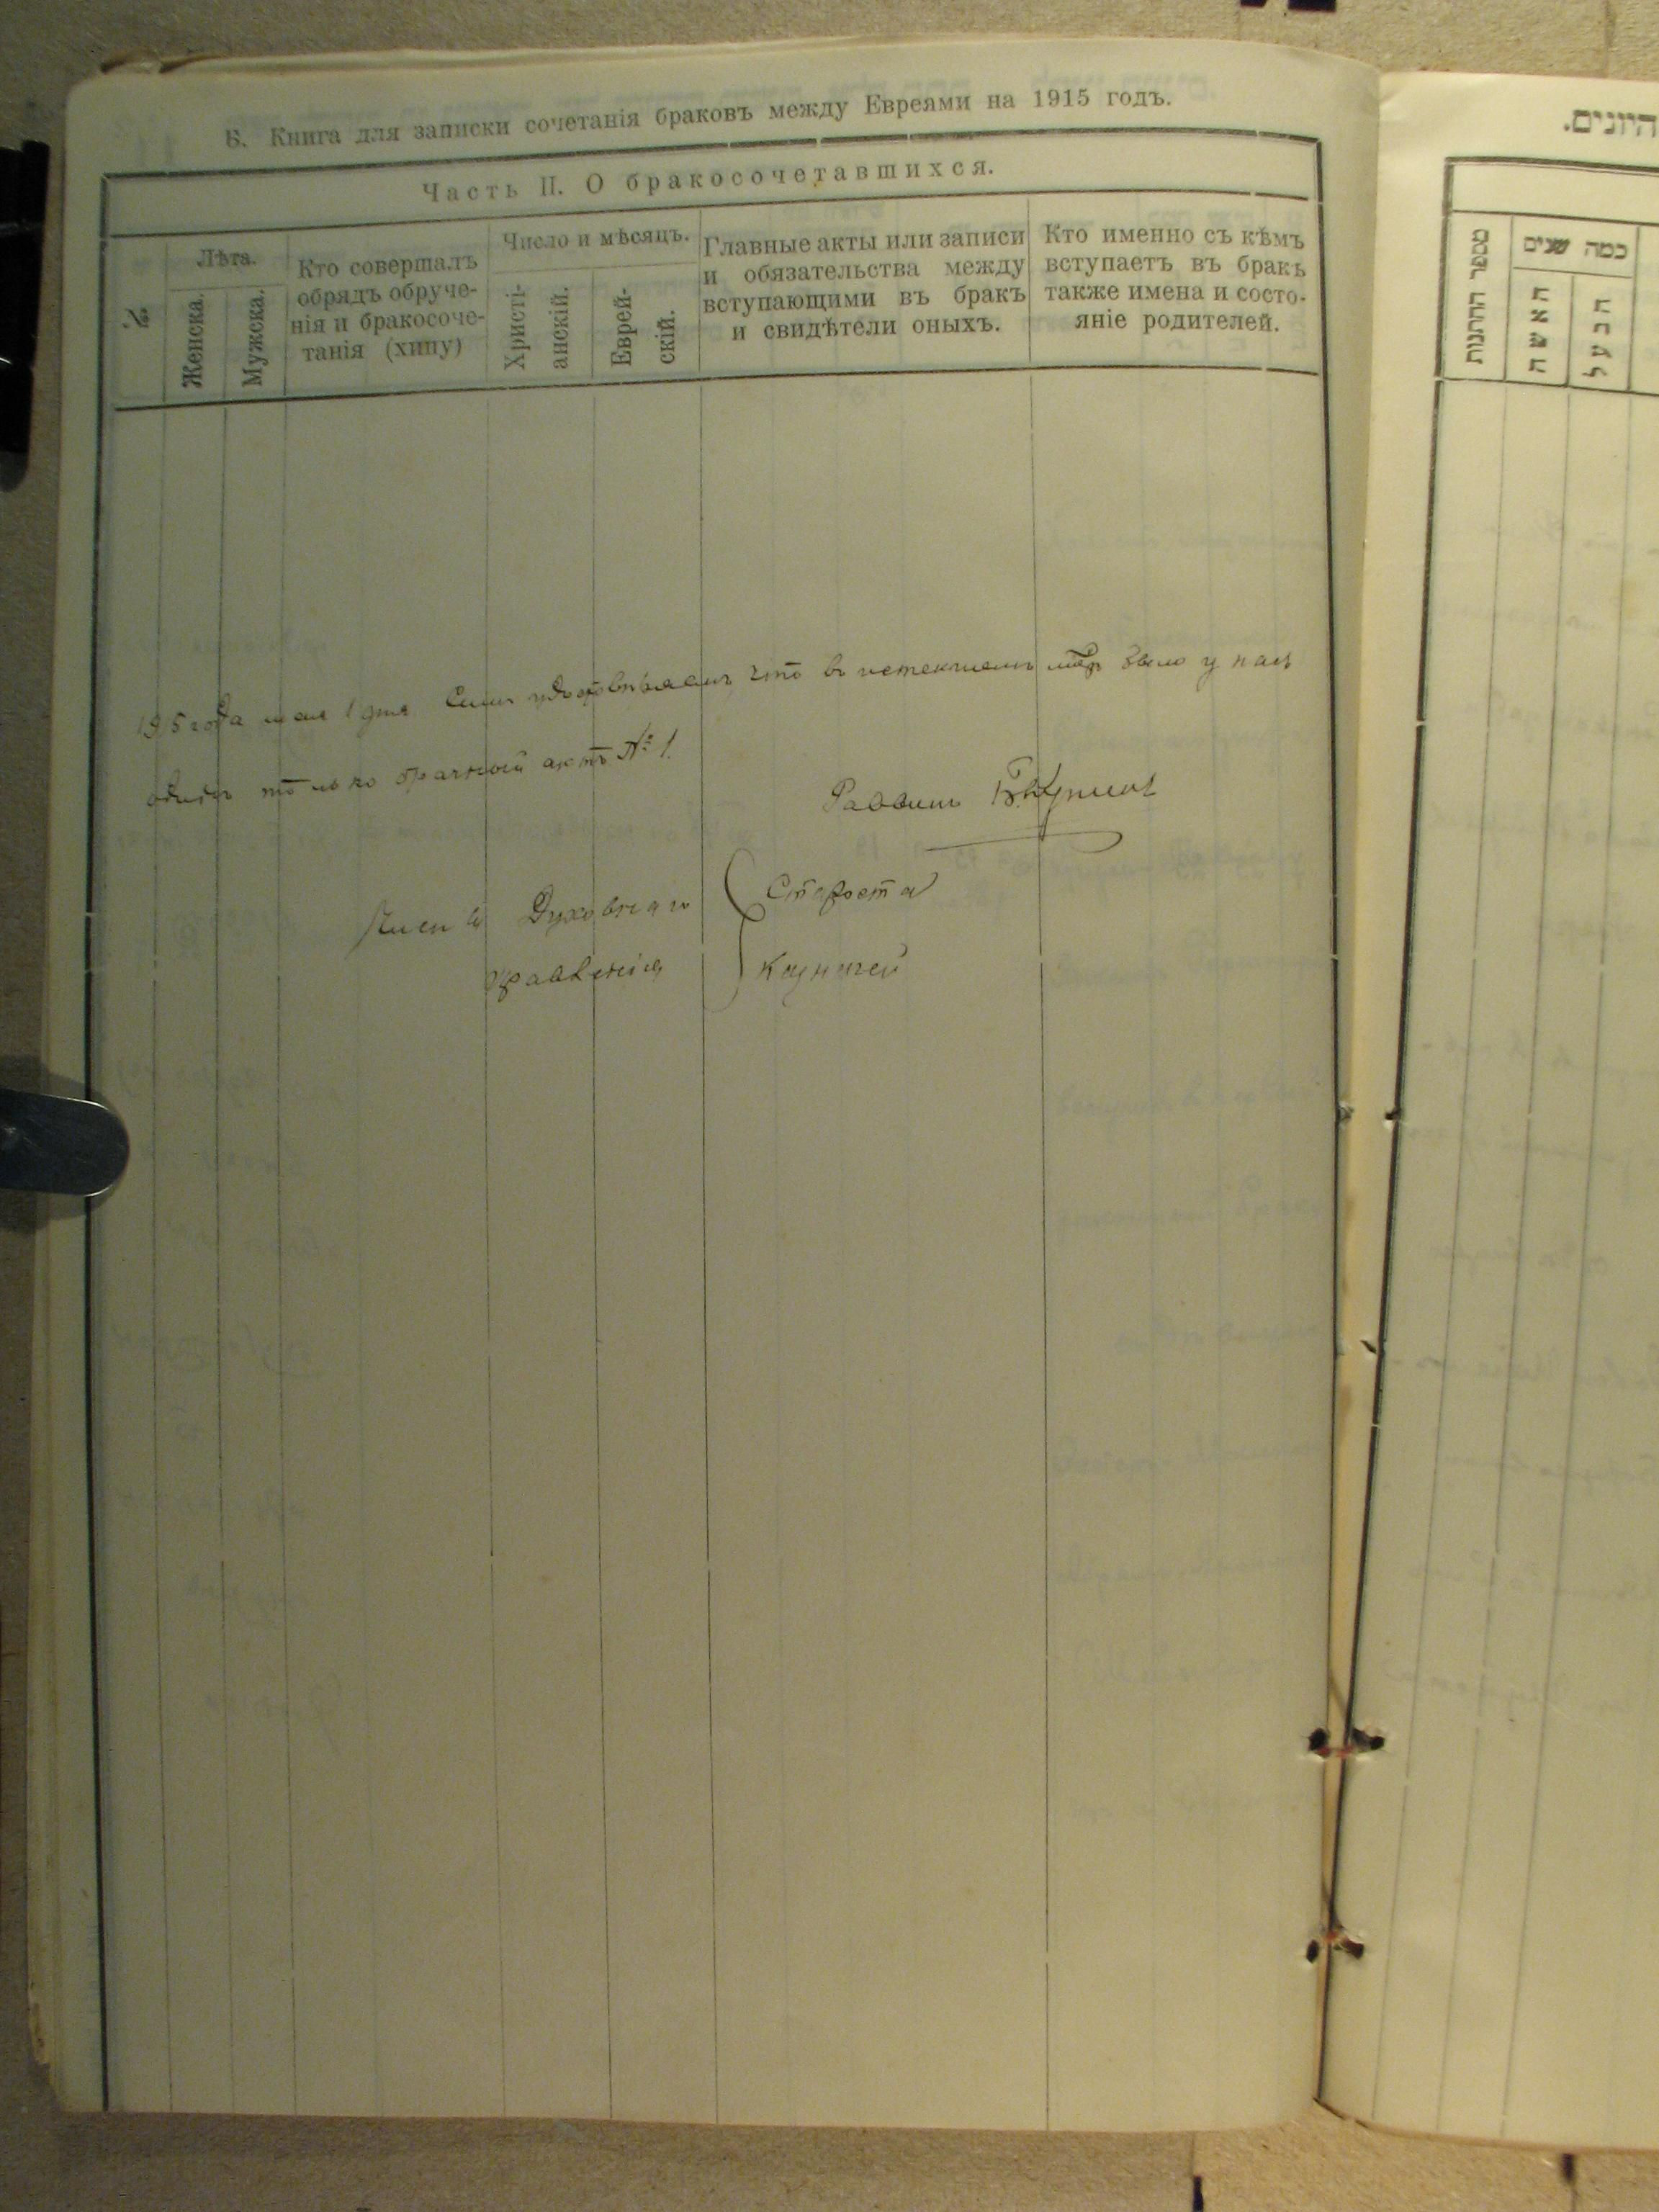 Б. Книга для записки сочетанія браковъ между Евреями на 1915 годъ.
Часть II. О бракосочетавшихся.
№
Лѣта.
Женска.
Мужска.
Кто совершалъ
обрядъ обруче-
нія и бракосоче-
танія (хипу)
Число и мѣсяцъ.
Христі-
анскій.
Еврей-
скій.
Главные акты или записи
и обязательства между
вступающими въ бракъ
и свидѣтели оныхъ.
Кто именно съ кѣмъ
вступаетъ въ бракъ
также имена и состо-
яніе родителей.
1915 года мая 1 дня Симъ удостовѣряемъ что въ истекшемъ было у насъ
одинъ только брачный актъ № 1.
Раввинъ
Члены Духовнаго
Правленія
Староста
Казначей
היונים.
מספר החתנות
כמה שנים
האשה
הבעל